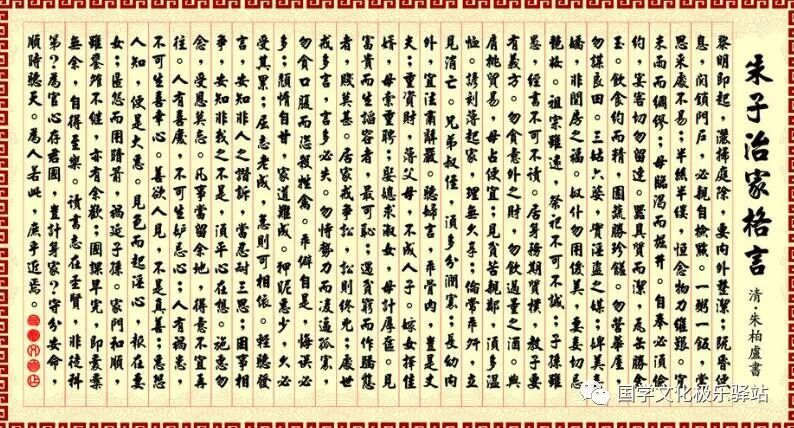 朱子治家格言
清·朱柏廬書
黎明即起，灑掃庭除，要內外整潔；既昏便
息，關鎖門戶，必親自檢點。一粥一飯，當
思來處不易；半絲半縷，恆念物力維艱。宜
未雨而綢繆；毋臨渴而掘井。自奉必須儉
約，宴客切勿留連。器具質而潔，瓦缶勝金
玉。飲食約而精，園蔬勝珍饈。勿營華屋，
勿謀良田。三姑六婆，實淫盜之媒；婢美妾
嬌，非閨房之福。奴仆勿用俊美，妻妾切忌
艷妝。祖宗雖遠，祭祀不可不誠；子孫雖
愚，經書不可不讀。居身務期質樸，教子要
有義方。勿貪意外之財，勿飲過量之酒。與
肩挑貿易，毋占便宜；見貧苦親鄰，須多溫
恤。刻薄起家，理無久享；倫常乖舛，立
見消亡。兄弟叔侄，須多分潤寡；長幼內
外，宜法肅辭嚴。聽婦言，乖骨肉，豈是丈
夫；重資財，薄父母，不成人子。嫁女擇佳
婿，毋索重聘；娶媳求淑女，毋計厚奩。見
富貴而生諂容者，最可恥；遇貧窮而作驕態
者，賤莫甚。居家戒爭訟，訟則終凶；處世
戒多言，言多必失。勿恃勢力而凌逼孤寡，
勿貪口腹而恣殺牲禽。乖僻自是，悔誤必
多；頹惰自甘，家道難成。狎昵惡少，久必
受其累；屈志老成，急則可相依。輕聽發
言，安知非人之譖訴，當忍耐三思；因事相
爭，安知非我之不是，須平心在想。施惠勿
念，受恩莫忘。凡事當留余地，得意不宜再
往。人有喜慶，不可生妒忌心；人有禍患，
不可生喜幸心。善欲人見，不是真善；惡恐
人知，便是大惡。見色而起淫心，報在妻
女；匿怨而用暗箭，禍延子孫。家門和順，
雖饔飧不繼，亦有余歡；國課早完，即囊橐
無余，自得至樂。讀書志在聖賢，非徒科
第？為官心存君國，豈計身家？守分安命，
順時聽天。為人若此，庶乎近焉。
国学文化极乐驿站